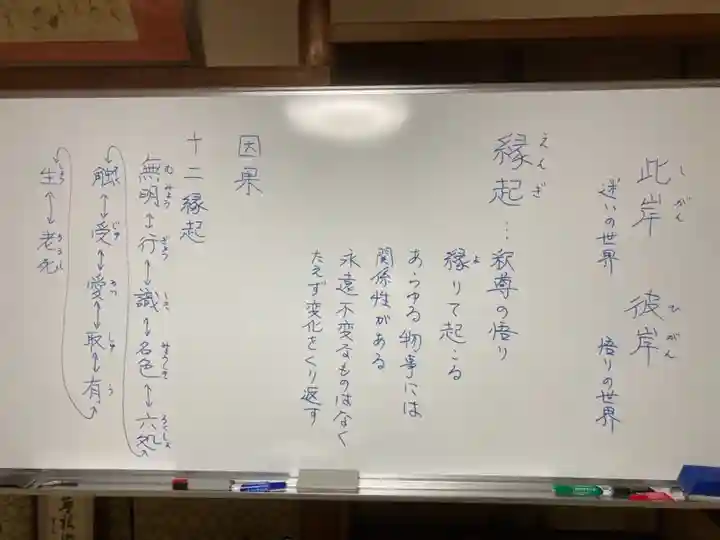 此岸 彼岸
しがん ひがん
迷いの世界 悟りの世界
えんぎ
縁起…釈尊の悟り
縁りて起こる
よ
あらゆる物事には
関係性がある
永遠不変なるものはなく
たえず変化をくり返す
因果
十二縁起
無明↔行↔識↔名色↔六処
むみょう ぎょう しき みょうしき ろくしょ
触↔受↔愛↔取↔有
そく じゅ あい しゅ う
生↔老死
しょう ろうし